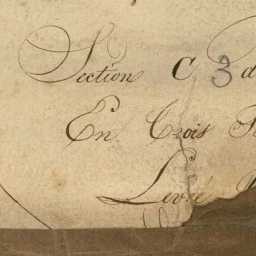 Section C 3 d
En Trois
Levé